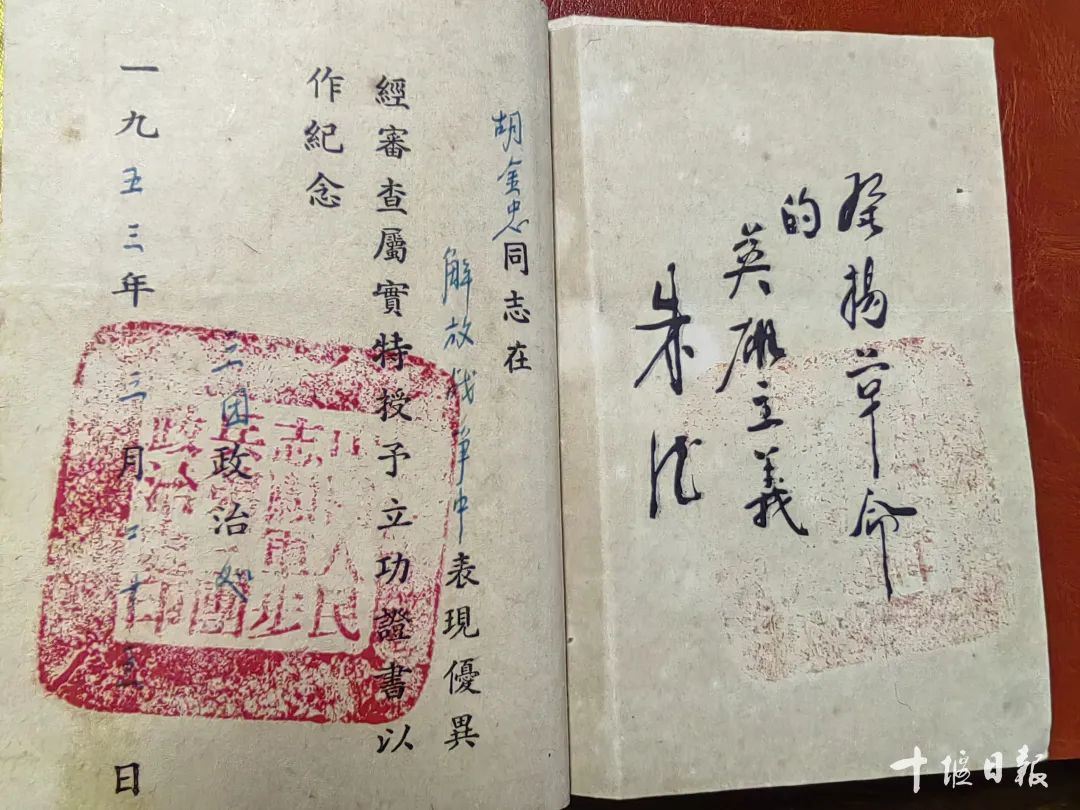 發揚革命
的
英雄主義
朱德
胡金忠同志在
解放战争中表現優異
經審查屬實特授予立功證書以
作紀念
二团政治处
一九五三年三月二十日
十堰日報